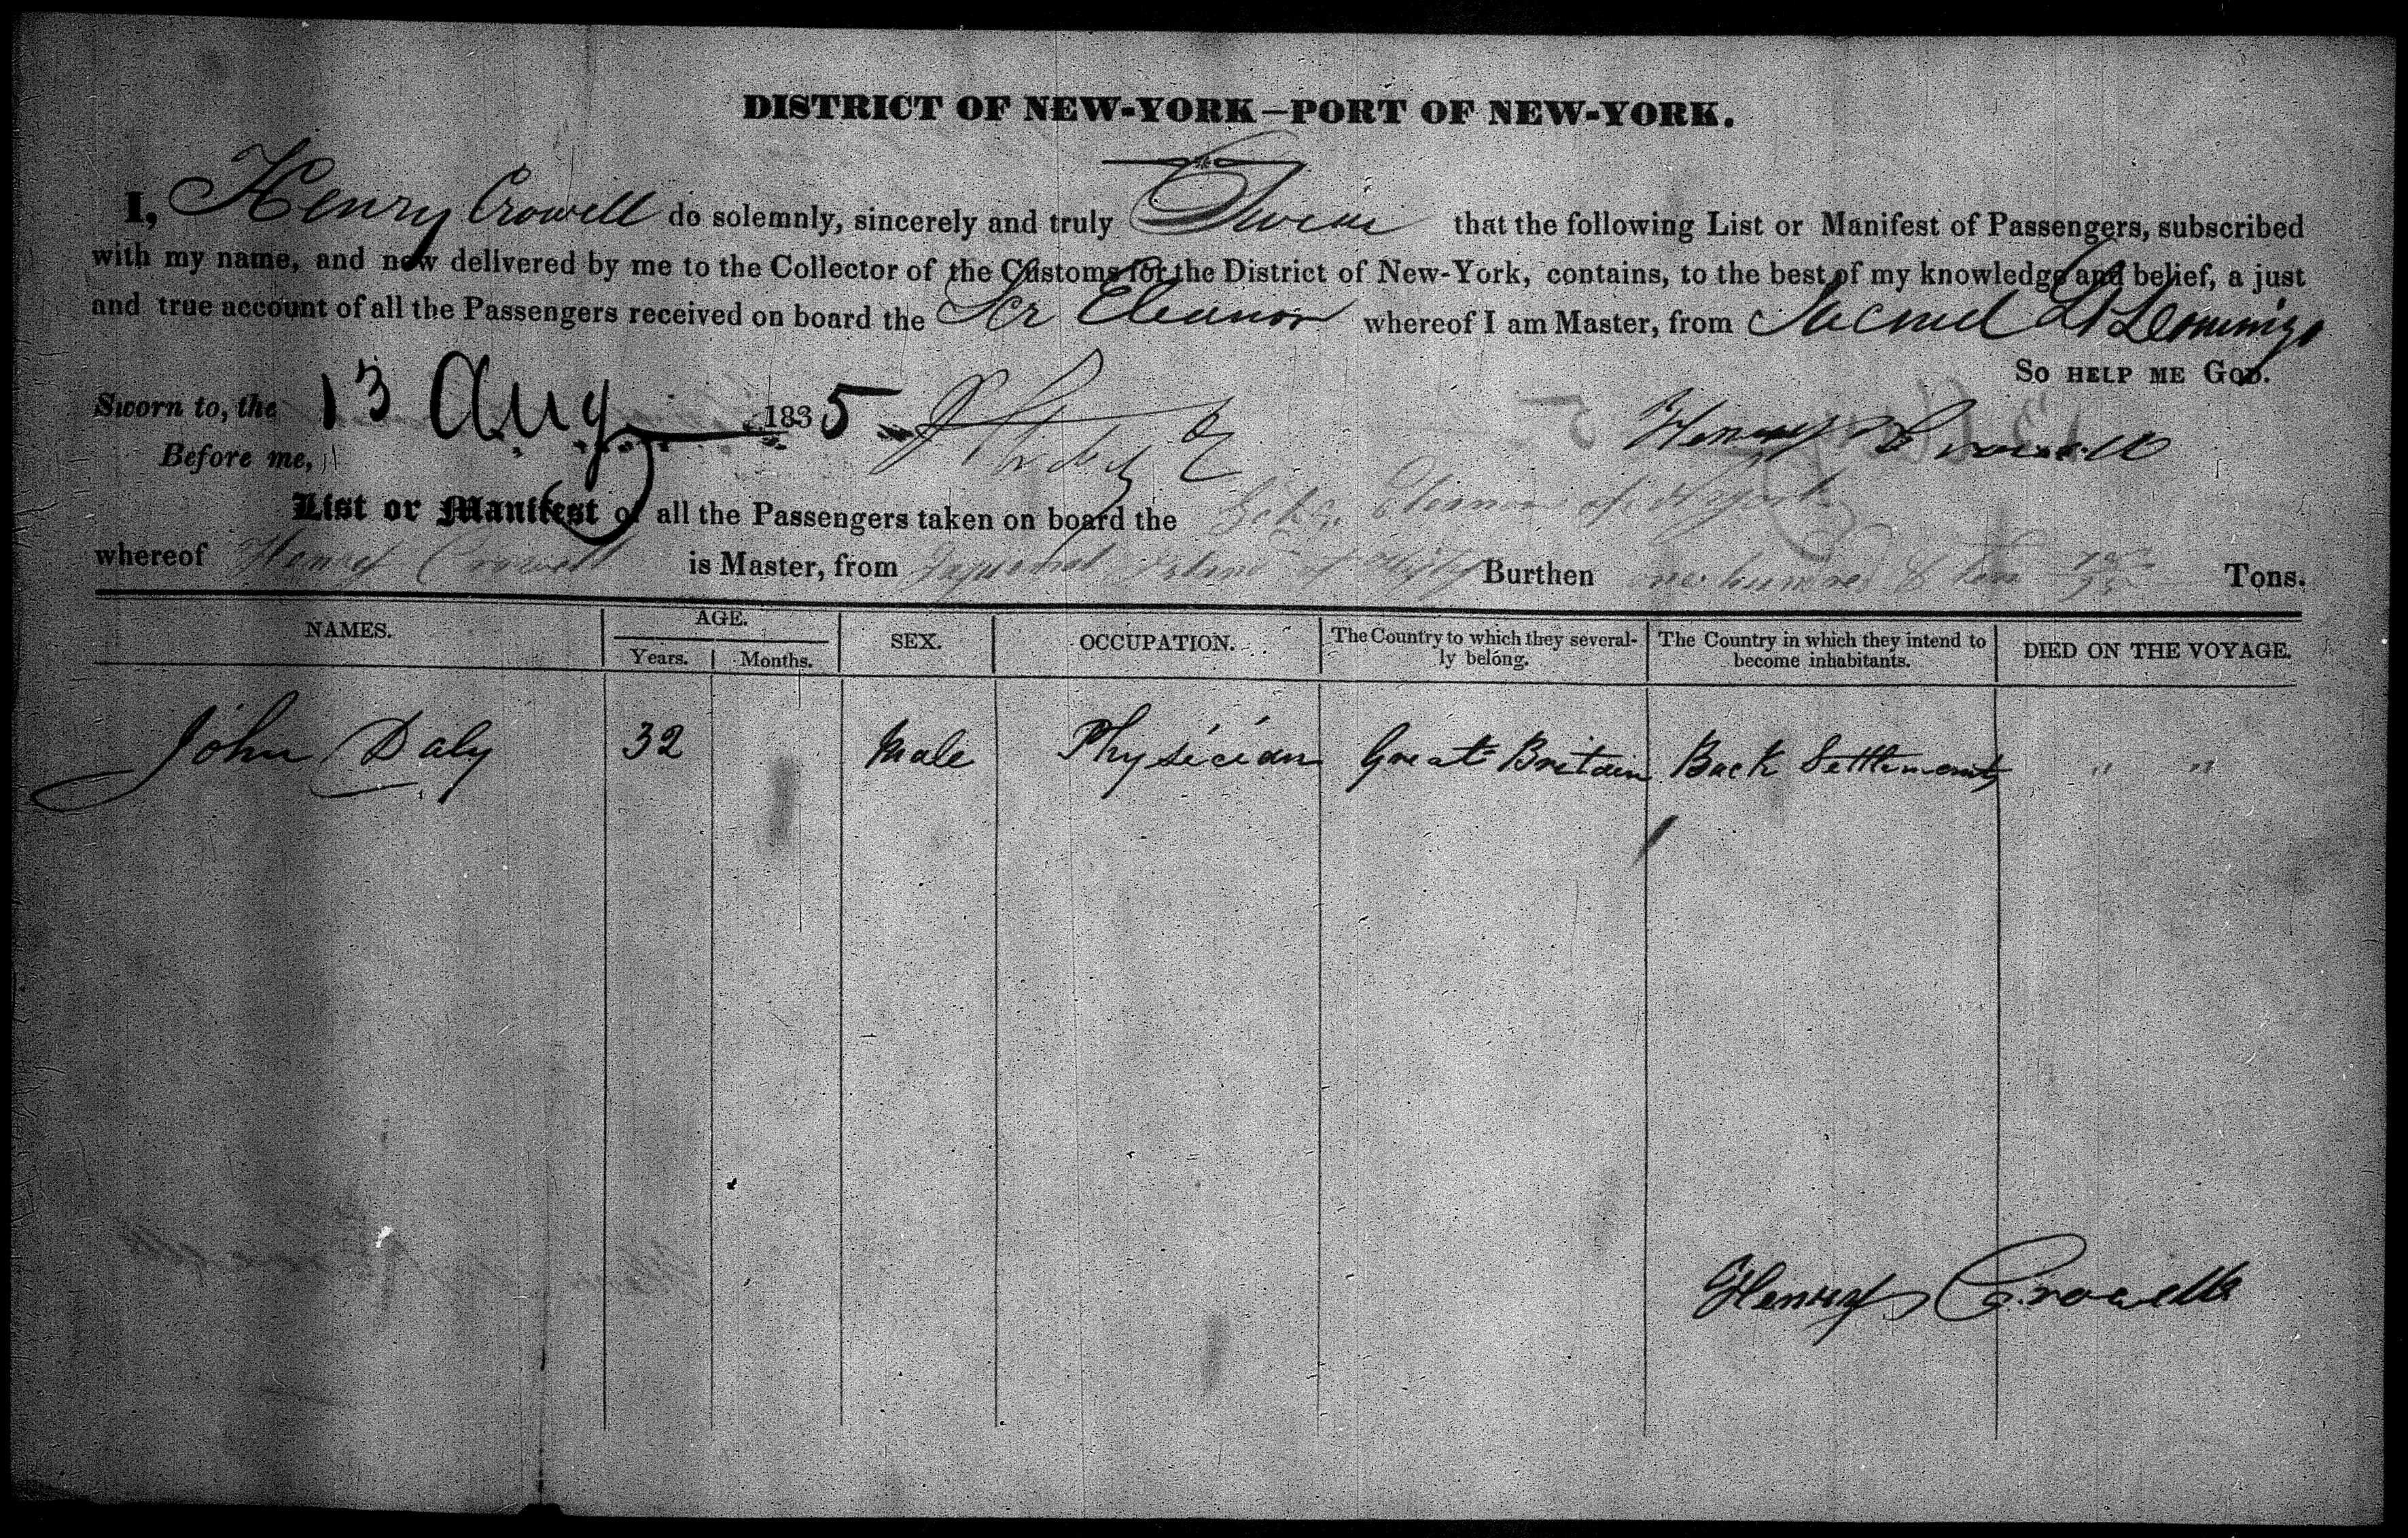 DISTRICT OF NEW-YORK—PORT OF NEW-YORK.
I, Henry Crowell do solemnly, sincerely and truly Swear that the following List or Manifest of Passengers, subscribed
with my name, and now delivered by me to the Collector of the Customs for the District of New-York, contains, to the best of my knowledge and belief, a just
and true account of all the Passengers received on board the Scr Eleanor whereof I am Master, from Jacmel St Domingo
SO HELP ME GOD.
Sworn to, the 13 Aug 1835
Henry Crowell
Before me,
List or Manifest of all the Passengers taken on board the Schr. Eleanor of N York
whereof Henry Crowell is Master, from Island of Burthen one hundred & ten Tons.
NAMES. AGE. SEX. OCCUPATION. The Country to which they several- The Country in which they intend to DIED ON THE VOYAGE.
Years. Months. ly belong. become inhabitants.
John Daly 32 Male Physician Great Britain Back Settlements " "
Henry Crowell